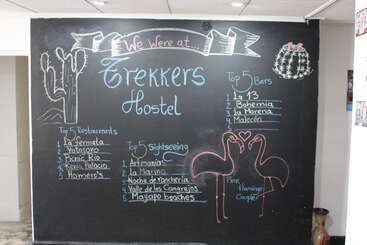 We Were at...
Trekkers
Hostel
Top 5 Restaurants
1
2
3 Picnic Rio
4
5 Romero's
Top 5 Sightseeing
1 Artmania
2 La Marina
3 Noche de Ranchería
4 Valle de los Cangrejos
5 Mayapo beaches
Top 5 Bars
1 La 13
2 Bohemia
3 La Morena
4 Malecón
5
Pink
Flamingo
Couple